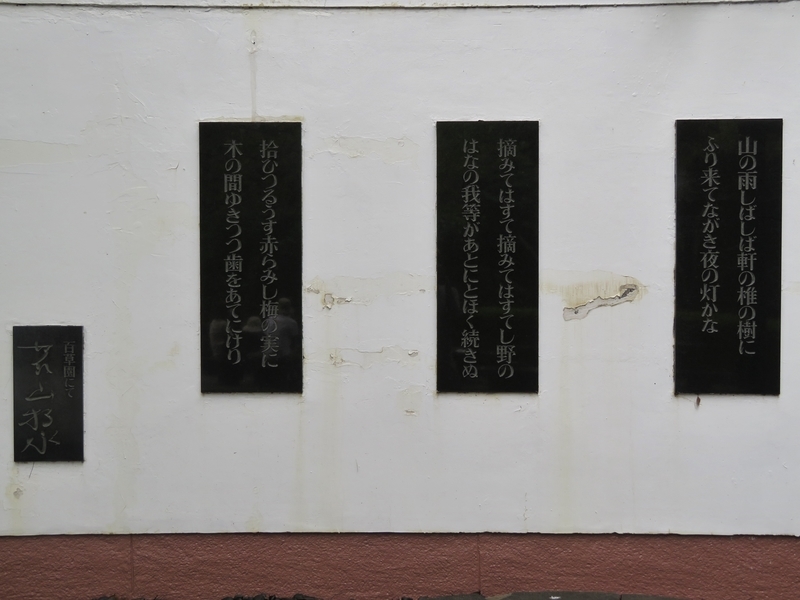 山の雨しばしば軒の椎の樹に
ふり来てながき夜の灯かな
摘みてはすて摘みてはすてし野の
はなの我等があとにとほく続きぬ
拾ひつるうす赤らみし梅の実に
木の間ゆきつつ歯をあてにけり
百草園にて
若山牧水